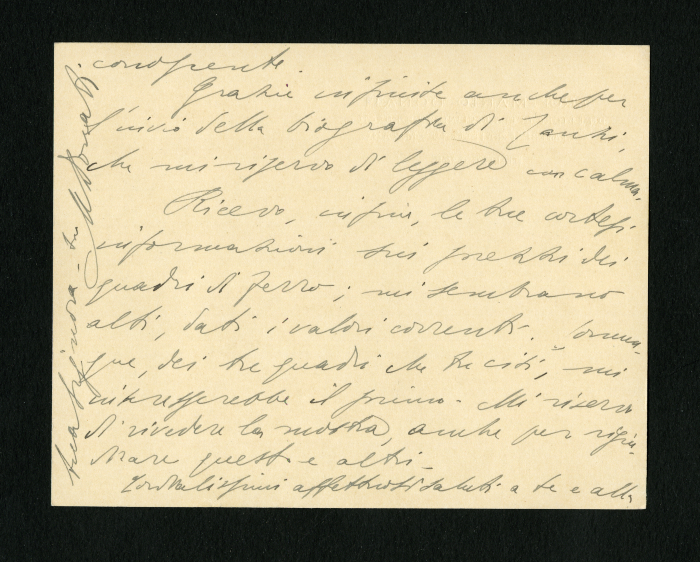 conoscente.
Grazie infinite anche per
l'invio della biografia di Zanzi,
che mi riservo di leggere con calma.
Ricevo, infine, le tue cortesi
informazioni sui prezzi dei
quadri di Ferro; mi sembrano
alti, dati i valori correnti. Comun-
que, dei tre quadri che tu citi, mi
interesserebbe il primo. Mi riservo
di rivedere la mostra, anche per
questi e altri.
Cordialissimi affettuosi saluti a te e alla
tua Signora - tuo